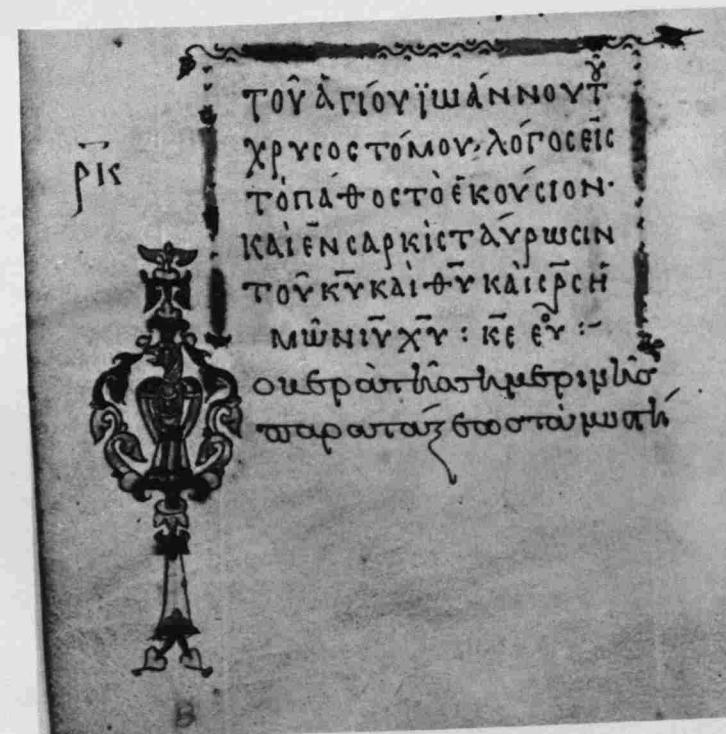 ρ̅ι̅ς̅
τοῦ ἁγίου ϊωάννου τοῦ
χρυσοστόμου· λόγος εἰς
τὸ πάθος τὸ ἑκούσιον·
καὶ ἔνσαρκι σταύρωσιν
τοῦ κ̅υ̅ καὶ θ̅υ̅ καὶ σ̅ρ̅ς ἡ
μῶν ι̅υ̅ χ̅υ̅ : κ̅ε̅ εὐ :-
οβερὰ τῆς σημερινῆς
παρατάξεως τὰ μυστή
B